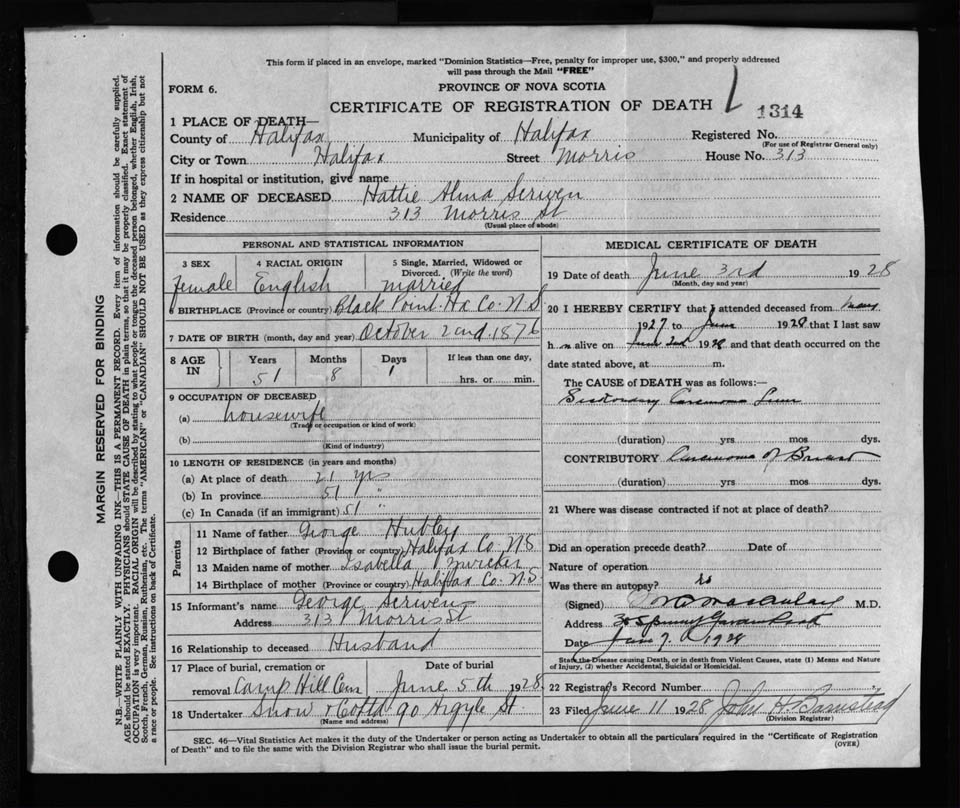 This form if placed in an envelope, marked "Dominion Statistics—Free, penalty for improper use, $300," and properly addressed
will pass through the Mail "FREE"
FORM 6.
PROVINCE OF NOVA SCOTIA
CERTIFICATE OF REGISTRATION OF DEATH
1314
1 PLACE OF DEATH—
County of Halifax Municipality of Halifax Registered No.
(For use of Registrar General only)
City or Town Halifax Street Morris House No. 313
If in hospital or institution, give name
2 NAME OF DECEASED Hattie Alma Scriven
Residence 313 Morris St
(Usual place of abode)
PERSONAL AND STATISTICAL INFORMATION
3 SEX 4 RACIAL ORIGIN 5 Single, Married, Widowed or
Divorced. (Write the word)
female English married
6 BIRTHPLACE (Province or country) Black Point Hx Co. N.S
7 DATE OF BIRTH (month, day and year) October 2nd 1876
8 AGE IN Years Months Days If less than one day,
51 8 1 hrs. or min.
9 OCCUPATION OF DECEASED
(a) housewife
(Trade or occupation or kind of work)
(b)
(Kind of industry)
10 LENGTH OF RESIDENCE (in years and months)
(a) At place of death 21 yrs
(b) In province 51 "
(c) In Canada (if an immigrant) 51 "
Parents
11 Name of father George Hubley
12 Birthplace of father (Province or country) Halifax Co. N.S
13 Maiden name of mother Isabella Zwicker
14 Birthplace of mother (Province or country) Halifax Co. N.S.
15 Informant's name George Scriven
Address 313 Morris St
16 Relationship to deceased Husband
17 Place of burial, cremation or Date of burial
removal Camp Hill Cem June 5th 1928
18 Undertaker Snow & Co Ltd 90 Argyle St.
(Name and address)
MEDICAL CERTIFICATE OF DEATH
19 Date of death June 3rd 1928
(Month, day and year)
20 I HEREBY CERTIFY that I attended deceased from
1927 to June 1928 that I last saw
h alive on June 2nd 1928 and that death occurred on the
date stated above, at m.
The CAUSE of DEATH was as follows:—
Secondary Carcinoma
(duration) yrs mos dys.
CONTRIBUTORY Carcinoma of Breast
(duration) yrs. mos. dys.
21 Where was disease contracted if not at place of death?
Did an operation precede death? Date of
Nature of operation
Was there an autopsy? no
(Signed) M.D.
Address
Date June 7. 1928
State the Disease causing Death, or in death from Violent Causes, state (1) Means and Nature
of Injury, (2) whether Accidental, Suicidal or Homicidal.
22 Registrar's Record Number
23 Filed June 11 1928 John H. Barnstead
(Division Registrar)
SEC. 46—Vital Statistics Act makes it the duty of the Undertaker or person acting as Undertaker to obtain all the particulars required in the "Certificate of Registration
of Death" and to file the same with the Division Registrar who shall issue the burial permit.
(OVER)
MARGIN RESERVED FOR BINDING
N.B.—WRITE PLAINLY WITH UNFADING INK—THIS IS A PERMANENT RECORD. Every item of information should be carefully supplied.
AGE should be stated EXACTLY. PHYSICIANS should STATE CAUSE OF DEATH in plain terms, so that it may be properly classified. Exact statement of
OCCUPATION is very important. RACIAL ORIGIN will be described by stating to what people or tongue the deceased person belonged, whether English, Irish,
Scotch, French, German, Russian, Ruthenian, etc. The terms "AMERICAN" or "CANADIAN" SHOULD NOT BE USED as they express citizenship but not
a race or people. See instructions on back of Certificate.